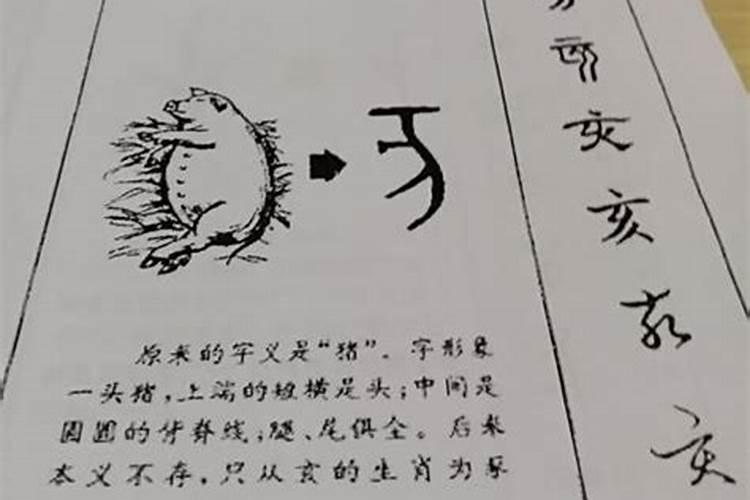 原来的字义是“猪”。字形象
一头猪,上端的短横是头;中间是
圆圆的背脊线;腿、尾俱全。后来
本义不存,只从亥的生肖为
亥
亥
亥
亥